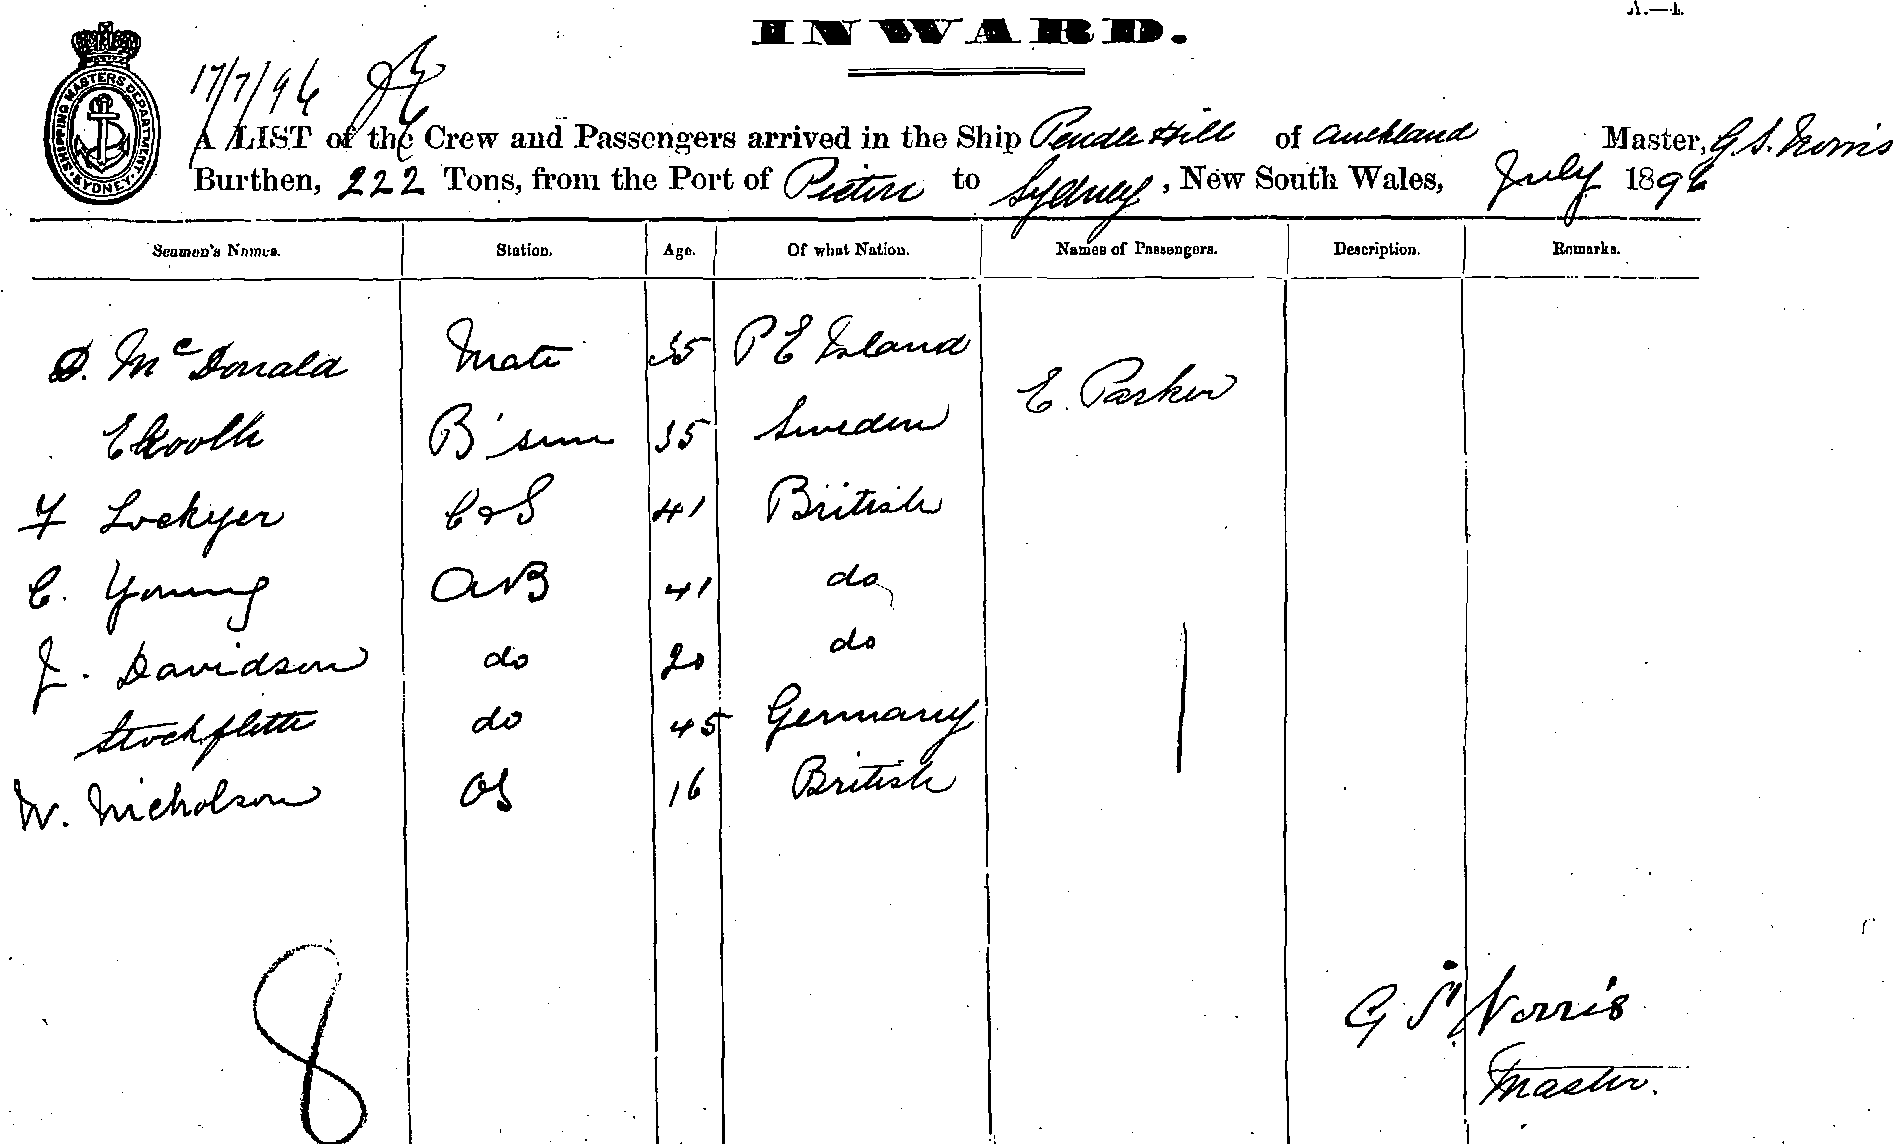 A.—1.
INWARD.
SHIPPING MASTERS DEPARTMENT SYDNEY
17/7/96
A LIST of the Crew and Passengers arrived in the Ship Pendle Hill of Auckland Master, G. S. Norris
Burthen, 222 Tons, from the Port of Picton to Sydney, New South Wales, July 1896
Seamen's Names. Station. Age. Of what Nation. Names of Passengers. Description. Remarks.
D. McDonald Mate 35 P E Island
E. Parker
B'sun 35 Sweden
F Lockyer C & S 41 British
C. Young AB 41 do
J. Davidson do 20 do
Stockflette do 45 Germany
W. Nicholson OS 16 British
1
8
G S Norris
Master.